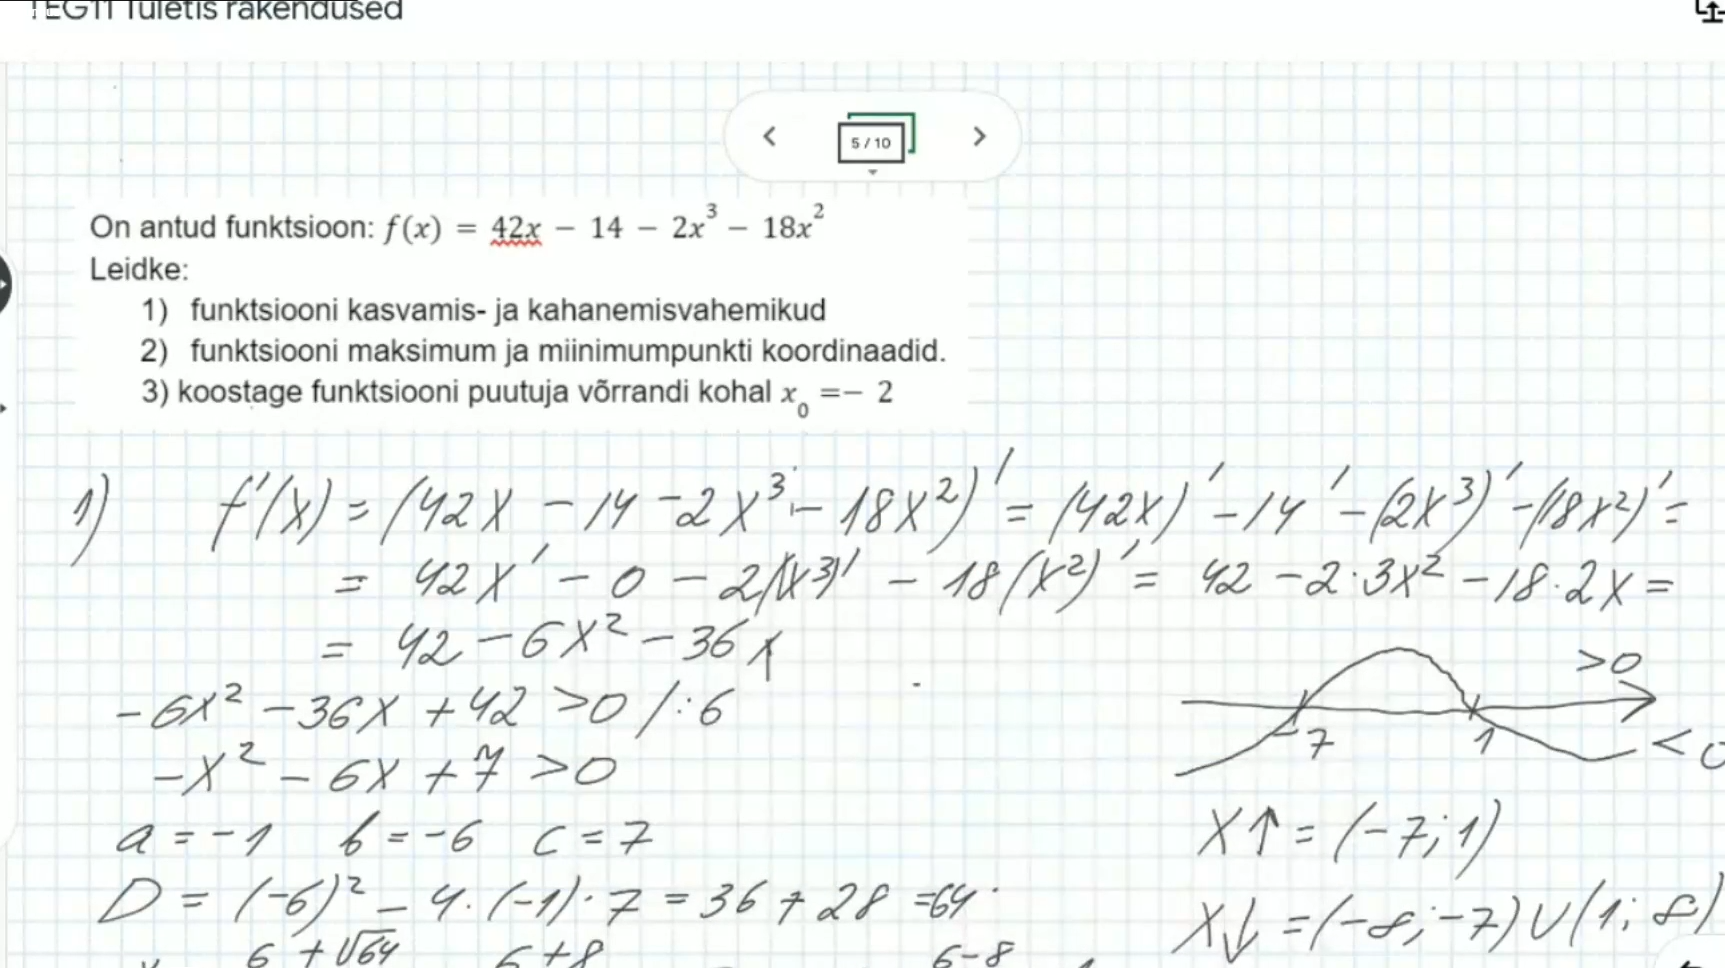 TEG11 Tuletis rakendused
5 / 10
On antud funktsioon: f(x) = 42x − 14 − 2x³ − 18x²
Leidke:
1) funktsiooni kasvamis- ja kahanemisvahemikud
2) funktsiooni maksimum ja miinimumpunkti koordinaadid.
3) koostage funktsiooni puutuja võrrandi kohal x₀ =− 2
1) f'(x) = (42x − 14 − 2x³ − 18x²)' = (42x)' − 14' − (2x³)' − (18x²)' =
= 42x' − 0 − 2(x³)' − 18(x²)' = 42 − 2·3x² − 18·2x =
= 42 − 6x² − 36x
>0
−6x² − 36x + 42 >0 /:6
−7 1 <0
−x² − 6x + 7 >0
x↑ = (−7; 1)
a = −1 b = −6 c = 7
D = (−6)² − 4·(−1)·7 = 36 + 28 = 64
x↓ = (−∞; −7) ∪ (1; ∞)
6 + √64 6 + 8 6 − 8